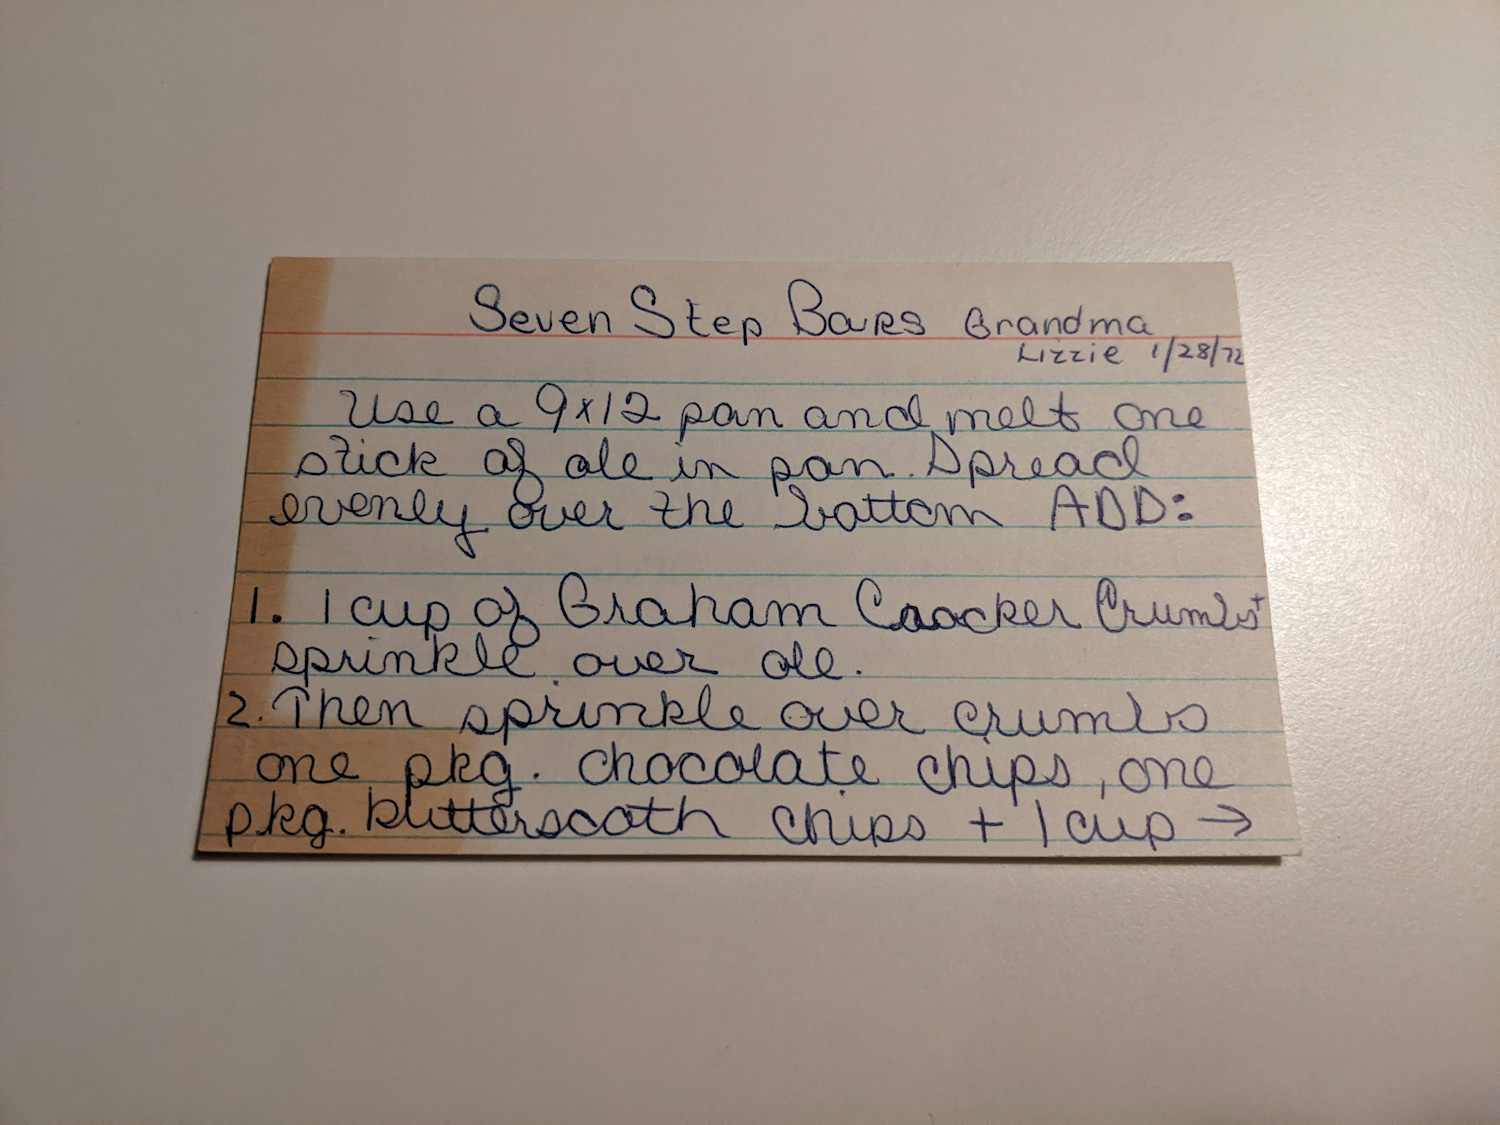 Seven Step Bars Grandma
Lizzie 1/28/72
Use a 9x12 pan and melt one
stick of ole in pan. Spread
evenly over the bottom ADD:
1. 1 cup of Graham Craocker Crumbs +
sprinkle over ole.
2. Then sprinkle over crumbs
one pkg. chocolate chips, one
pkg. butterscoth chips + 1 cup →